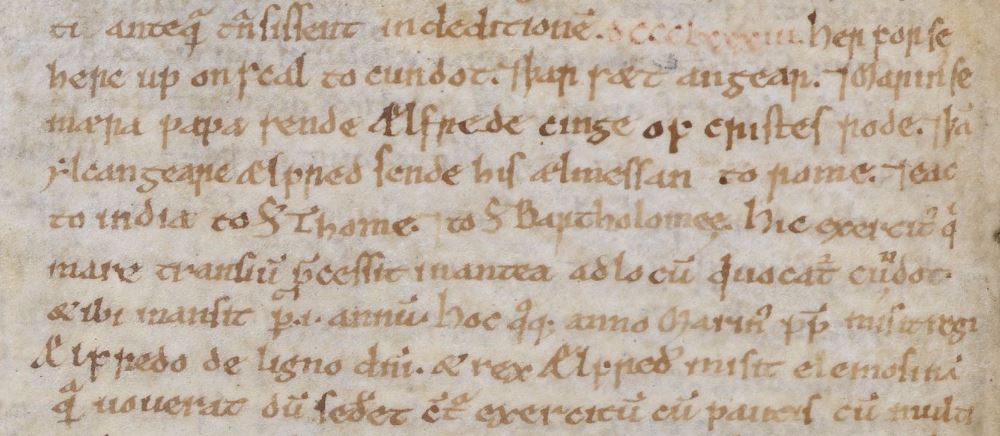 ti anteq̄ trāsissent in deditionē. DCCCLXXXIII. her for se
here up on scal to cundoþ. ⁊ þar sæt an gear. ⁊ Marin se
mæra papa sende Ælfrede cinge of cristes rode. ⁊ þā
ylcan geare Ælfred sende his ælmessan to rome. ⁊ eac
to india to S̄ Thome. ⁊ to S̄ Bartholomeę. Hic exercit᷒ q͛
mare transiit p̄cessit inantea ad locū q͛ uocat᷒ cundoþ.
& ibi mansit p .i. annū. Hoc q͛q; anno Marin᷒ pp̄ misit regi
Ælfredo de ligno dn̄i. & rex Ælfred᷒ misit elemosinā
quā uouerat dū sed͛et cͭ͛ exercitū cū paucis cū multi